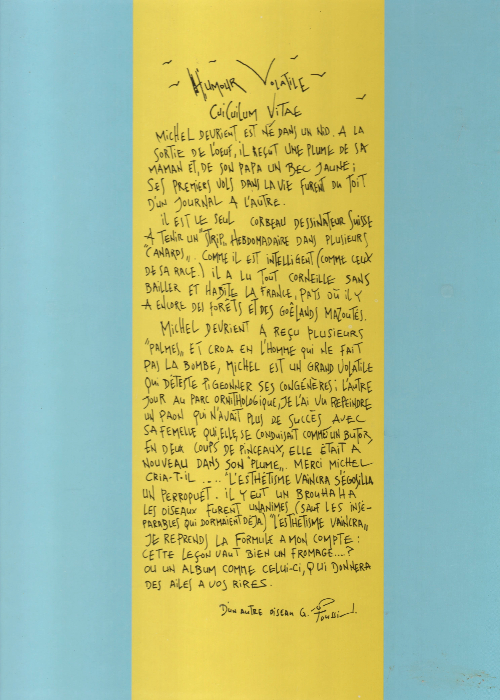 HUMOUR VOLATILE
CUICUILUM VITAE
MICHEL DEVRIENT EST NÉ DANS UN NID. A LA
SORTIE DE L'OEUF, IL REÇUT UNE PLUME DE SA
MAMAN ET, DE SON PAPA UN BEC JAUNE;
SES PREMIERS VOLS DANS LA VIE FURENT DU TOIT
D'UN JOURNAL A L'AUTRE.
IL EST LE SEUL CORBEAU DESSINATEUR SUISSE
A TENIR UN "STRIP" HEBDOMADAIRE DANS PLUSIEURS
"CANARDS". COMME IL EST INTELLIGENT (COMME CEUX
DE SA RACE.) IL A LU TOUT CORNEILLE SANS
BAILLER ET HABITE LA FRANCE, PAYS OÙ IL Y
A ENCORE DES FORÊTS ET DES GOÊLANDS MAZOUTÉS.
MICHEL DEVRIENT A REÇU PLUSIEURS
"PALMES" ET CROA EN L'HOMME QUI NE FAIT
PAS LA BOMBE, MICHEL EST UN GRAND VOLATILE
QUI DÉTESTE PIGEONNER SES CONGÉNÈRES; L'AUTRE
JOUR AU PARC ORNITHOLOGIQUE, JE L'AI VU REPEINDRE
UN PAON QUI N'AVAIT PLUS DE SUCCÈS AVEC
SA FEMELLE QUI, ELLE, SE CONDUISAIT COMME UN BUTOR,
EN DEUX COUPS DE PINCEAUX, ELLE ÉTAIT A
NOUVEAU DANS SON "PLUME". MERCI MICHEL
CRIA-T-IL .... "L'ESTHÉTISME VAINCRA S'ÉGOSILLA
UN PERROQUET. IL Y EUT UN BROUHAHA
LES OISEAUX FURENT UNANIMES (SAUF LES INSÉ-
PARABLES QUI DORMAIENT DÉJA) "L'ESTHÉTISME VAINCRA"
JE REPRENDS LA FORMULE A MON COMPTE:
CETTE LEÇON VAUT BIEN UN FROMAGE....?
OU UN ALBUM COMME CELUI-CI, QUI DONNERA
DES AILES A VOS RIRES.
D'UN AUTRE OISEAU G.